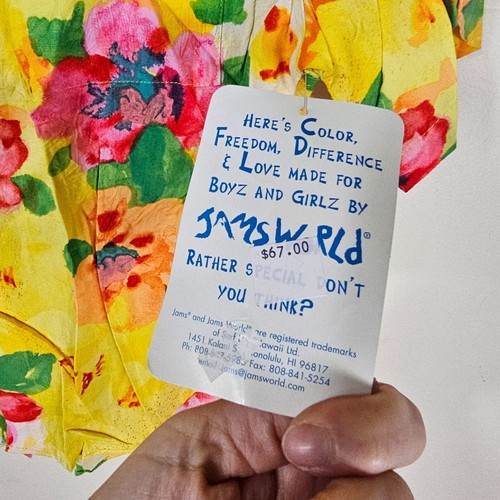 Here's Color,
Freedom, Difference
& Love made for
Boyz and Girlz by
JAMS WORLD®
$67.00
Rather special don't
you think?
Jams® and Jams World® are registered trademarks
of Surf Hawaii Ltd.
1451 Kalani S Honolulu, HI 96817
Ph: 808- Fax: 808-841-5254
email: jams@jamsworld.com